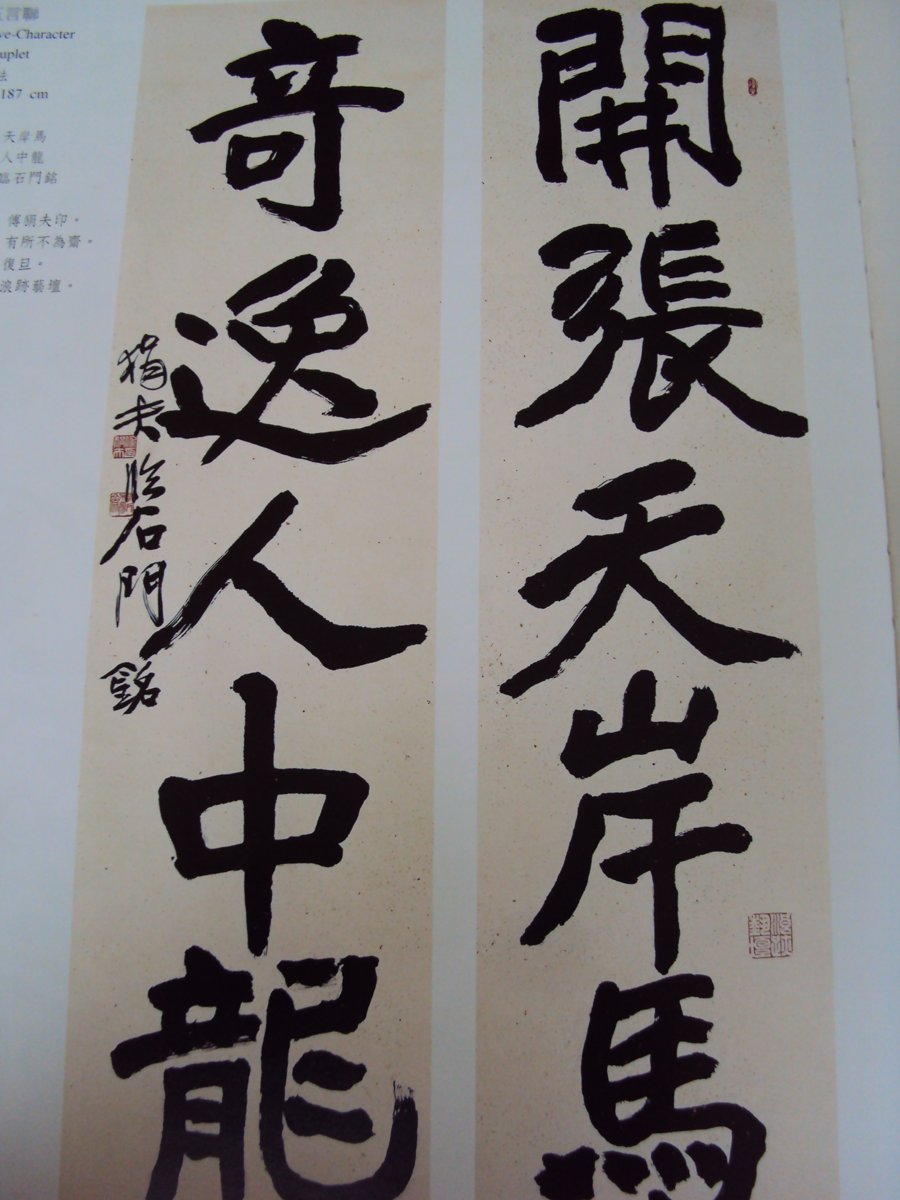 開張天岸馬
浪跡藝壇
奇逸人中龍
狷夫臨石門銘
言聯
ve-Character
uplet
法
187 cm
天岸馬
人中龍
臨石門銘
傅狷夫印。
有所不為齋。
復旦。
浪跡藝壇。